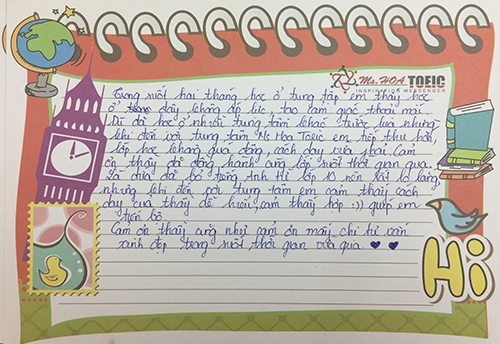 Ms. HOA TOEIC
INSPIRATION MESSENGER
Trong suốt hai tháng học ở trung tâm em thấy học
ở đây không áp lực, tạo cảm giác thoải mái.
Dù đã học ở nhiều trung tâm khác trước kia nhưng
khi đến với trung tâm Ms Hoa Toeic em tiếp thu hơn,
lớp học không quá đông, cách dạy vừa phải. Cảm
ơn thầy đã đồng hành cùng lớp suốt thời gian qua.
đã bỏ tiếng Anh từ lớp 10 nên rất lo lắng
nhưng khi đến với trung tâm em cảm thấy cách
dạy của thầy dễ hiểu, cảm thấy hợp :)) giúp em
tiến bộ.
Cảm ơn thầy cũng như cảm ơn mấy chị tư vấn
xinh đẹp trong suốt thời gian vừa qua ♥ ♥
Hi